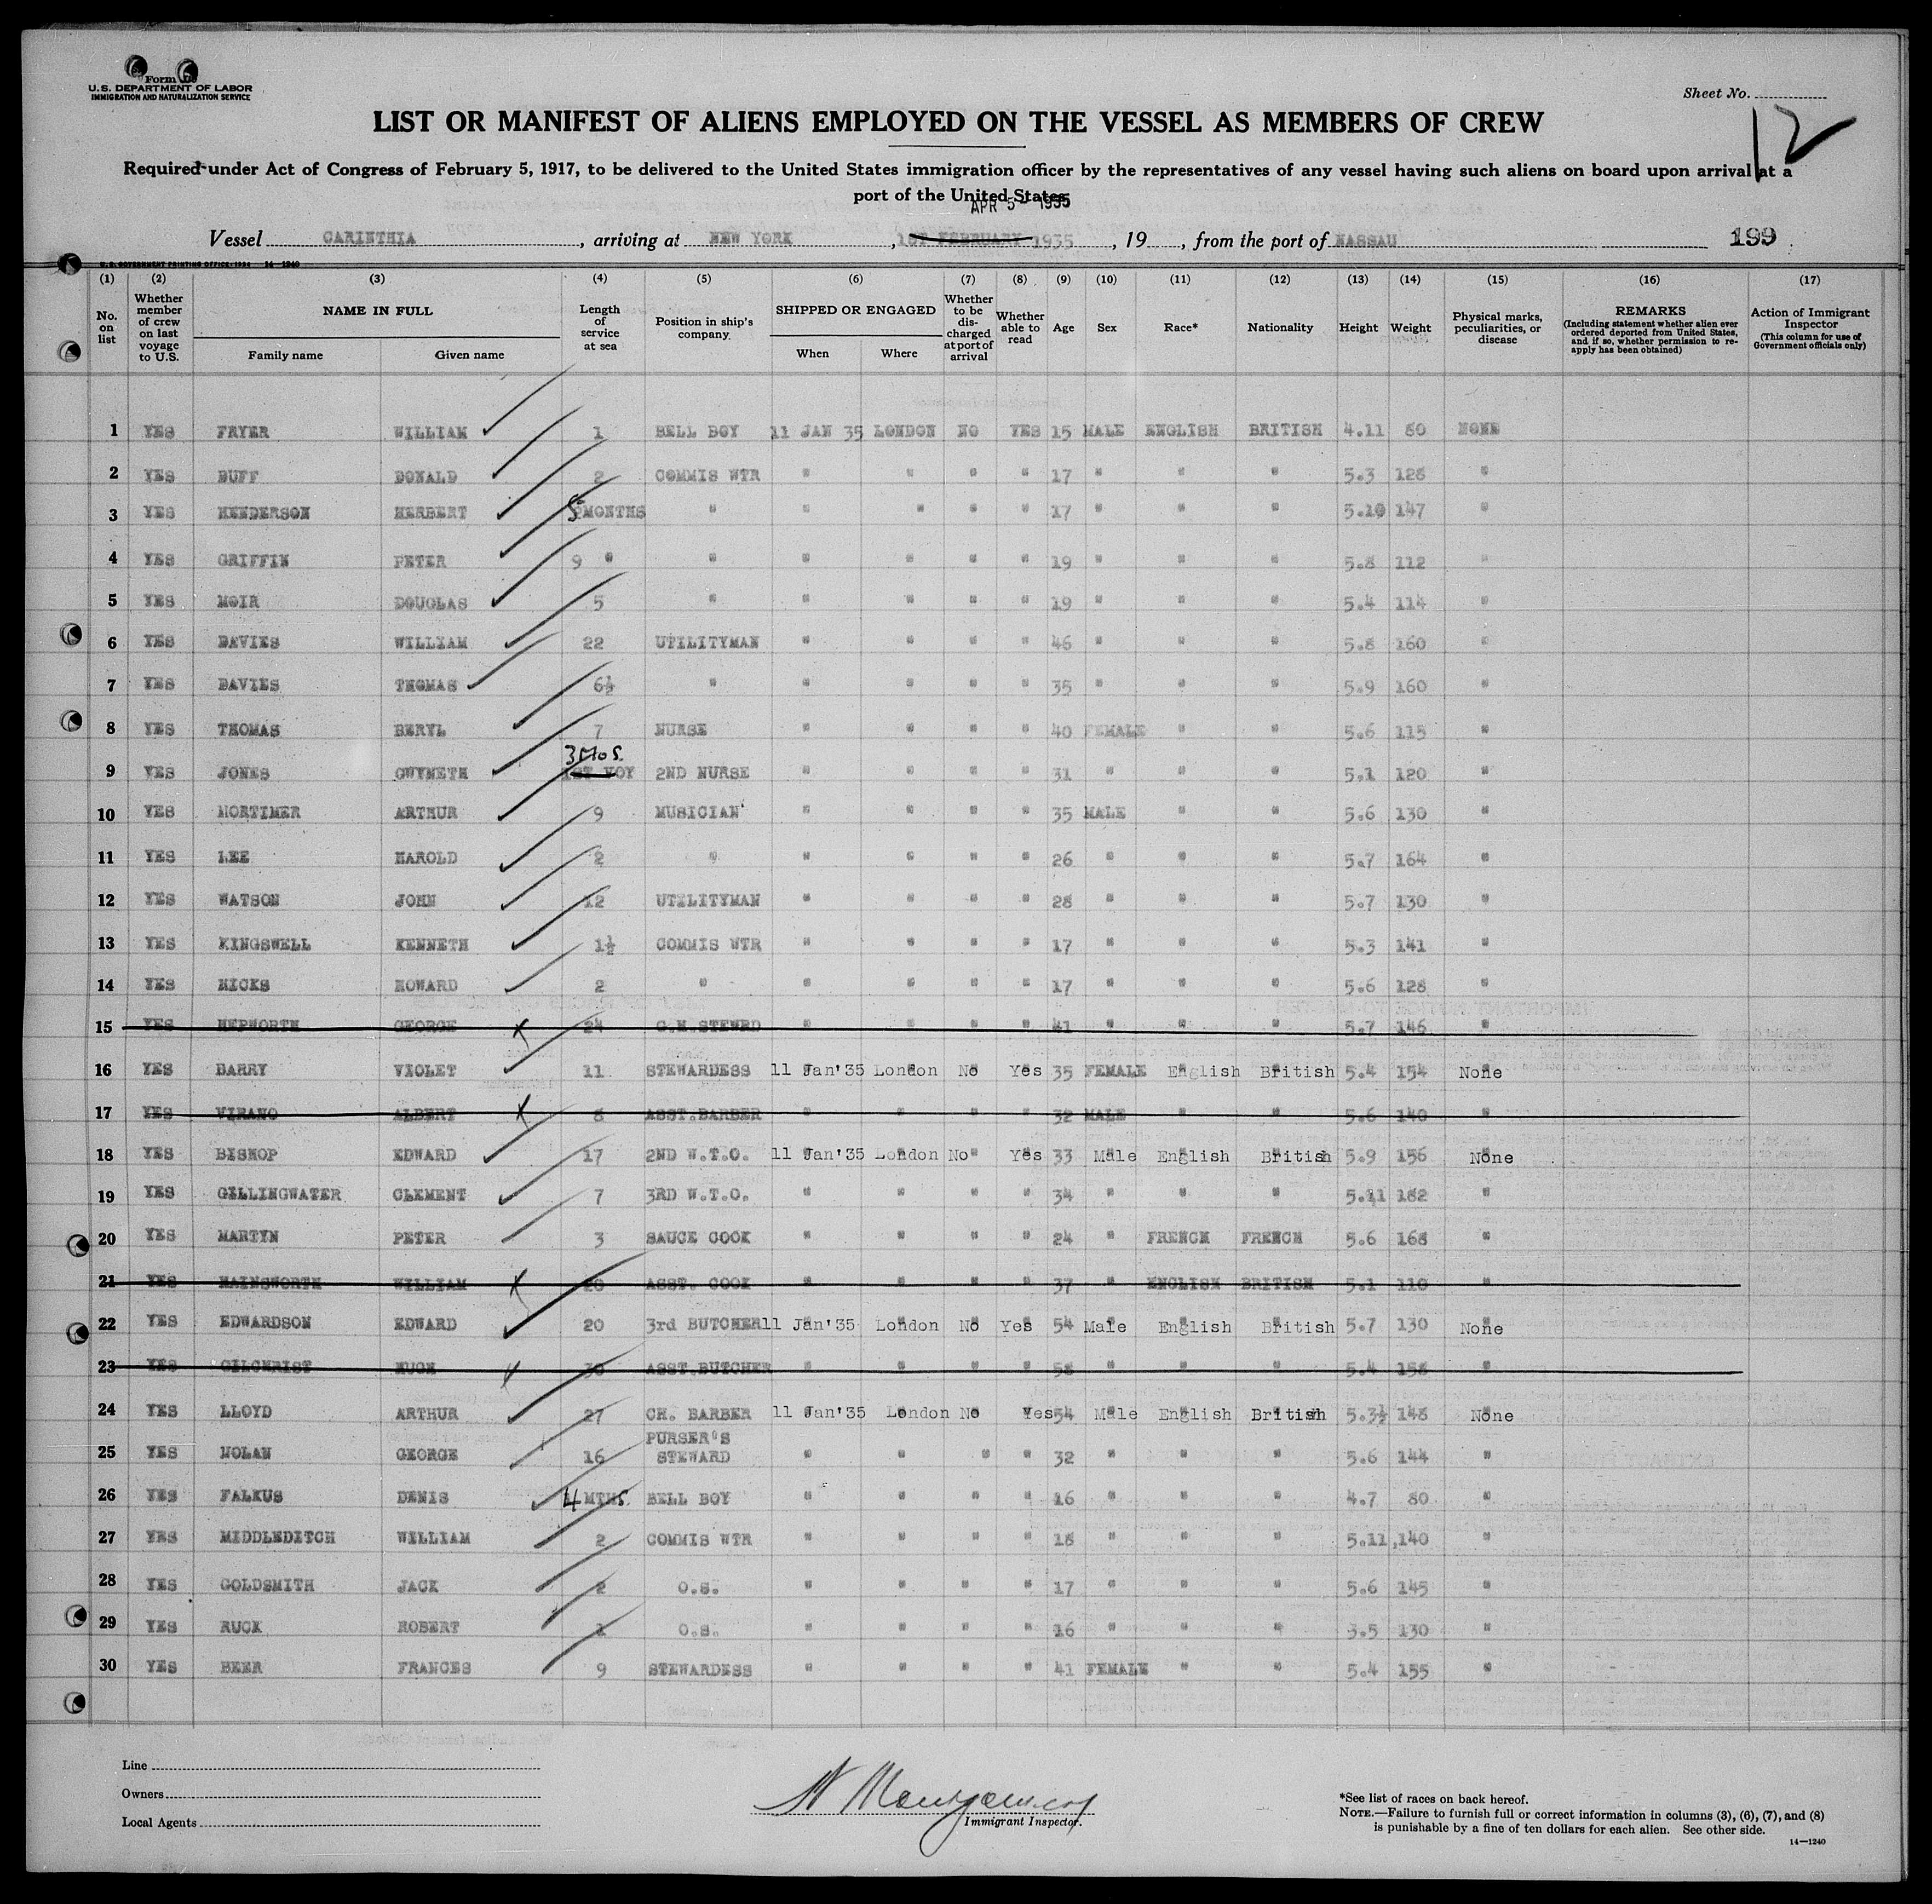 Form
U.S. DEPARTMENT OF LABOR
IMMIGRATION AND NATURALIZATION SERVICE
Sheet No.
12
LIST OR MANIFEST OF ALIENS EMPLOYED ON THE VESSEL AS MEMBERS OF CREW
Required under Act of Congress of February 5, 1917, to be delivered to the United States immigration officer by the representatives of any vessel having such aliens on board upon arrival at a
port of the United States
APR 5 - 1935
Vessel CARINTHIA, arriving at NEW YORK, 1ST FEBRUARY 1935, 19, from the port of NASSAU 199
U.S. GOVERNMENT PRINTING OFFICE: 1934 14-1240
(1) (2) (3) (4) (5) (6) (7) (8) (9) (10) (11) (12) (13) (14) (15) (16) (17)
No. on list Whether member of crew on last voyage to U.S. NAME IN FULL Family name Given name Length of service at sea Position in ship's company. SHIPPED OR ENGAGED When Where Whether to be discharged at port of arrival Whether able to read Age Sex Race* Nationality Height Weight Physical marks, peculiarities, or disease REMARKS (Including statement whether alien ever ordered deported from United States, and if so, whether permission to reapply has been obtained) Action of Immigrant Inspector (This column for use of Government officials only)
1 YES FRYER WILLIAM 1 BELL BOY 11 JAN 35 LONDON NO YES 15 MALE ENGLISH BRITISH 4.11 80 NONE
2 YES DUFF DONALD 2 COMMIS WTR " " " " 17 " " " 5.3 128 "
3 YES HENDERSON HERBERT 5 MONTHS " " " " " 17 " " " 5.10 147 "
4 YES GRIFFIN PETER 9 " " " " " " 19 " " " 5.8 112 "
5 YES MOIR DOUGLAS 5 " " " " " 19 " " " 5.4 114 "
6 YES DAVIES WILLIAM 22 UTILITYMAN " " " " 46 " " " 5.8 160 "
7 YES DAVIES THOMAS 6½ " " " " " 35 " " " 5.9 160 "
8 YES THOMAS BERYL 7 NURSE " " " " 40 FEMALE " " 5.6 115 "
3 Mos.
9 YES JONES GWYNETH 1ST VOY 2ND NURSE " " " " 31 " " " 5.1 120 "
10 YES MORTIMER ARTHUR 9 MUSICIAN " " " " 35 MALE " " 5.6 130 "
11 YES LEE HAROLD 2 " " " " " 26 " " " 5.7 164 "
12 YES WATSON JOHN 12 UTILITYMAN " " " " 28 " " " 5.7 130 "
13 YES KINGSWELL KENNETH 1½ COMMIS WTR " " " " 17 " " " 5.3 141 "
14 YES HICKS HOWARD 2 " " " " " 17 " " " 5.6 128 "
15 YES HEPWORTH GEORGE 24 C.H.STEWRD " " " " 41 " " " 5.7 146 "
16 YES BARRY VIOLET 11 STEWARDESS 11 Jan'35 London No Yes 35 FEMALE English British 5.4 154 None
17 YES VIRANO ALBERT 8 ASST.BARBER " " " " 32 MALE " " 5.6 140 "
18 YES BISHOP EDWARD 17 2ND W.T.O. 11 Jan'35 London No Yes 33 Male English British 5.9 156 None
19 YES GILLINGWATER CLEMENT 7 3RD W.T.O. " " " " 34 " " " 5.11 182 "
20 YES MARTYN PETER 3 SAUCE COOK " " " " 24 " FRENCH FRENCH 5.6 168 "
21 YES HAINSWORTH WILLIAM 20 ASST. COOK " " " " 37 " ENGLISH BRITISH 5.1 110 "
22 YES EDWARDSON EDWARD 20 3rd BUTCHER 11 Jan'35 London No Yes 54 Male English British 5.7 130 None
23 YES GILCHRIST HUGH 30 ASST.BUTCHER " " " " 58 " " " 5.4 158 "
24 YES LLOYD ARTHUR 27 CH. BARBER 11 Jan'35 London No Yes 54 Male English British 5.3½ 148 None
25 YES NOLAN GEORGE 16 PURSER'S STEWARD " " " " 32 " " " 5.6 144 "
26 YES FALKUS DENIS 4 MTHS BELL BOY " " " " 16 " " " 4.7 80 "
27 YES MIDDLEDITCH WILLIAM 2 COMMIS WTR " " " " 18 " " " 5.11 140 "
28 YES GOLDSMITH JACK 2 O.S. " " " " 17 " " " 5.6 145 "
29 YES RUCK ROBERT 1 O.S. " " " " 16 " " " 5.5 130 "
30 YES BEER FRANCES 9 STEWARDESS " " " " 41 FEMALE " " 5.4 155 "
Line
Owners
Local Agents
Montgomery
Immigrant Inspector.
*See list of races on back hereof.
NOTE.—Failure to furnish full or correct information in columns (3), (6), (7), and (8)
is punishable by a fine of ten dollars for each alien. See other side.
14—1240